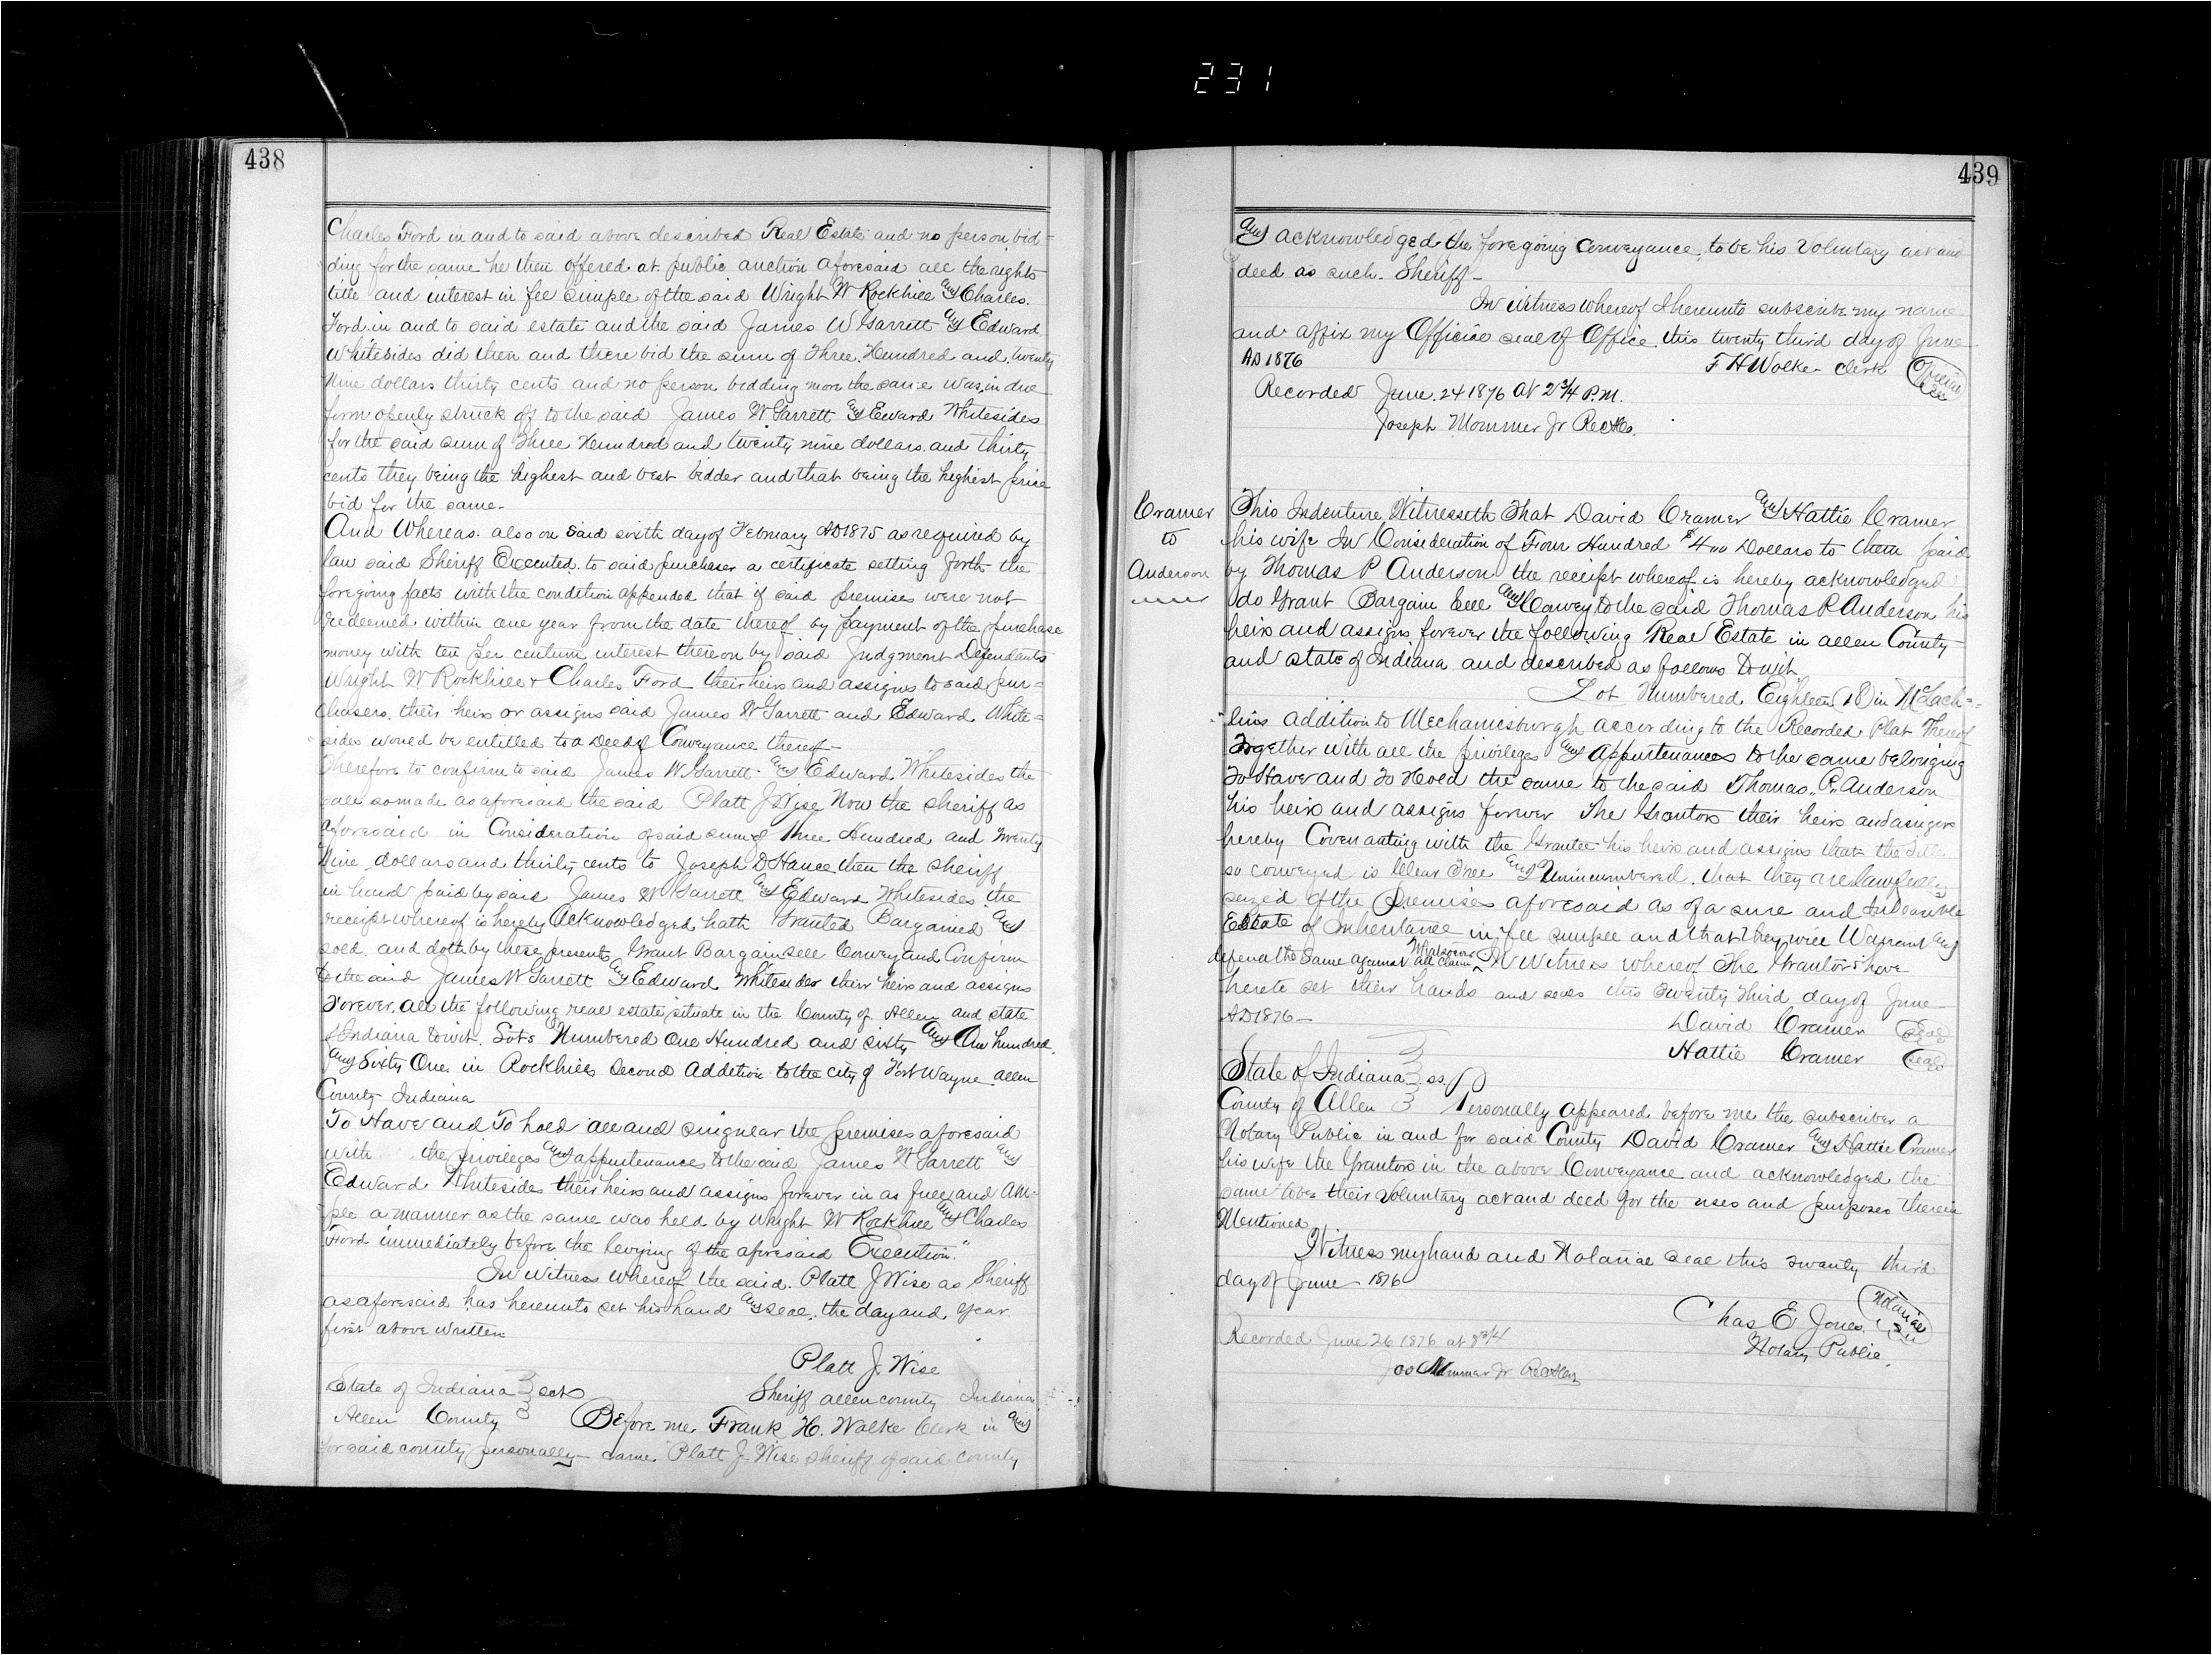 231
438
Charles Ford in and to said above described Real Estate and no person bid=
ding for the same he then offered at public auction aforesaid all the rights
title and interest in fee simple of the said Wright W Rockhill and Charles
Ford in and to said estate and the said James W Garrett and Edward
Whitesides did then and there bid the sum of Three Hundred and twenty
Nine dollars thirty cents and no person bidding more the same was in due
form openly struck off to the said James W Garrett and Eward Whitesides
for the said sum of Three Hundred and twenty nine dollars and thirty
cents they being the highest and best bidder and that being the highest price
bid for the same-
And Whereas also on said sixth day of February AD 1875 as required by
law said Sheriff Executed to said purchaser a certificate setting forth the
foregoing facts with the condition appended that if said premises were not
redeemed within one year from the date thereof by payment of the purchase
money with ten per centum interest thereon by said Judgment Defendants
Wright W Rockhill + Charles Ford their heirs and assigns to said pur=
chasers their heirs or assigns said James W Garrett and Edward White=
sides would be entitled to a Deed of Conveyance thereof-
Therefore to confirm to said James W Garrett and Edward Whitesides the
sale so made as aforesaid the said Platt J Wise Now the sheriff as
aforesaid in Consideration of said sum of Three Hundred and Twenty
Nine dollars and thirty cents to Joseph D Hance then the sheriff
in hand paid by said James W Garrett and Edward Whitesides the
receipt whereof is hereby Acknowledged hath Granted Bargained and
sold and doth by these presents Grant Bargain sell Convey and Confirm
to the said James W Garrett and Edward Whitesides their heirs and assigns
Forever all the following real estate situate in the County of Allen and state
of Indiana to wit. Lots Numbered One Hundred and sixty and One hundred
and Sixty One in Rockhills Second Addition to the city of Fort Wayne Allen
County Indiana
To Have and To hold all and singular the premises aforesaid
with the privileges and appurtenances to the said James W Garrett and
Edward Whitesides their heirs and assigns forever in as full and am=
ple a manner as the same was held by Wright W Rockhill and Charles
Ford immediately before the levying of the aforesaid Execution."
In Witness Whereof the said Platt J Wise as Sheriff
as aforesaid has hereunto set his hand and seal the day and year
first above written
Platt J. Wise
Sheriff Allen county Indiana
State of Indiana } sct
Allen County } Before me Frank H. Walke Clerk in and
for said county personally came Platt J Wise sheriff of said county
439
and acknowledged the foregoing Conveyance to be his Voluntary act and
deed as such Sheriff-
In witness whereof I hereunto subscribe my name
and affix my Official seal of Office this twenty third day of June
AD 1876 F H Wolke clerk Official Seal
Recorded June 24 1876 at 2 3/4 P.M.
Joseph Mommer Jr Rec
Cramer
to
Anderson
This Indenture Witnesseth That David Cramer and Hattie Cramer
his wife In Consideration of Four Hundred $400 Dollars to them paid
by Thomas P Anderson the receipt whereof is hereby acknowledged
do Grant Bargain Sell and Convey to the said Thomas P. Anderson his
heirs and assigns forever the following Real Estate in Allen County
and state of Indiana and described as follows To wit
Lot Numbered Eighteen (18) in McLach=
lins addition to Mechanicsburgh according to the Recorded Plat Thereof
Together with all the privileges and Appurtenances to the same belonging
To Have and To Hold the same to the said Thomas P. Anderson
his heirs and assigns forever The Grantors their heirs and assigns
hereby Covenanting with the Grantee his heirs and assigns that the Title
so conveyed is Clear Free and Unincumbered that they are lawfully
seized of the Premises aforesaid as of a sure and Indefeasible
Estate of Inheritance in fee simple and that they will Warrant and
defend the Same against all claims Whatsoever In Witness whereof The Grantors have
hereto set their hands and seals this twenty third day of June
AD 1876- David Cramer Seal
Hattie Cramer Seal
State of Indiana } ss.
County of Allen } Personally appeared before me the subscriber a
Notary Public in and for said County David Cramer and Hattie Cramer
his wife the Grantors in the above Conveyance and acknowledged the
same to be their Voluntary act and deed for the uses and purposes therein
Mentioned
Witness my hand and Notarial seal this twenty third
day of June 1876
Chas E Jones Notarial Seal
Notary Public.
Recorded June 26 1876 at 8 3/4
Jos Mommer Jr